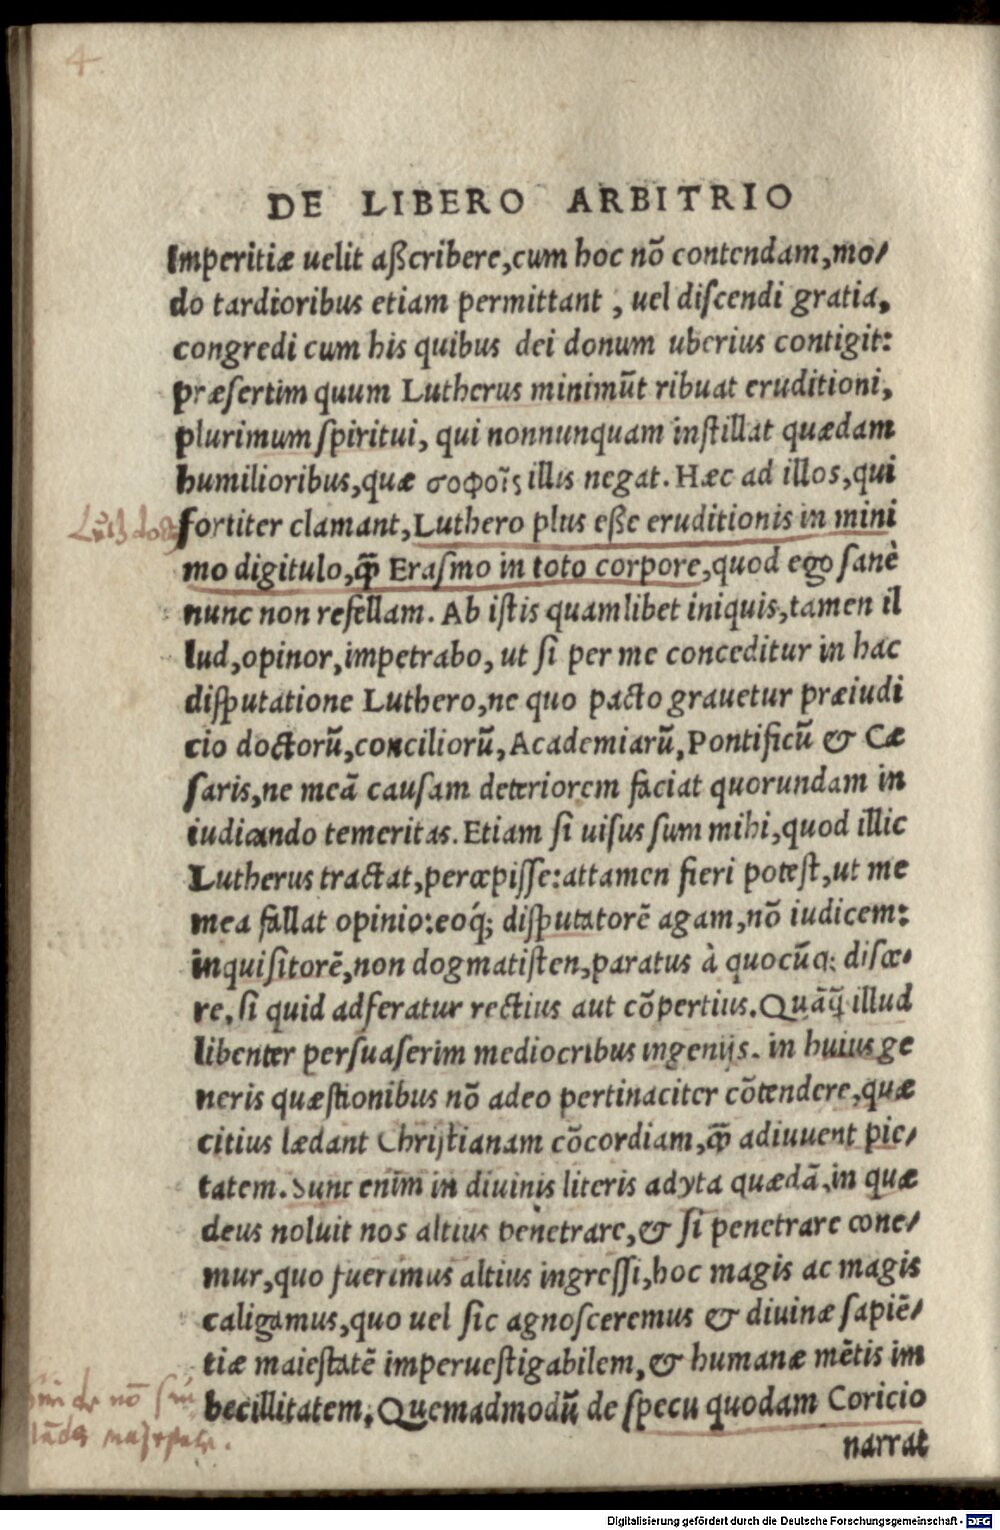 4.
DE LIBERO ARBITRIO
Imperitiæ uelit aßcribere, cum hoc nõ contendam, mo/
do tardioribus etiam permittant, uel discendi gratia,
congredi cum his quibus dei donum uberius contigit:
præsertim quum Lutherus minimũt ribuat eruditioni,
plurimum spiritui, qui nonnunquam instillat quædam
humilioribus, quæ σοφοῖς illis negat. Hæc ad illos, qui
fortiter clamant, Luthero plus eße eruditionis in mini
mo digitulo, q̃ꝫ Erasmo in toto corpore, quod ego sanè
nunc non refellam. Ab istis quamlibet iniquis, tamen il
lud, opinor, impetrabo, ut si per me conceditur in hac
disputatione Luthero, ne quo pacto grauetur præiudi
cio doctorũ, conciliorũ, Academiarũ, Pontificũ & Cæ
saris, ne meã causam deteriorem faciat quorundam in
iudicando temeritas. Etiam si uisus sum mihi, quod illic
Lutherus tractat, percepisse: attamen fieri potest, ut me
mea fallat opinio: eoq́; disputatorẽ agam, nõ iudicem:
inquisitorẽ, non dogmatisten, paratus à quocũq; disce/
re, si quid adferatur rectius aut cõpertius. Quãq̃ illud
libenter persuaserim mediocribus ingenijs. in huius ge
neris quæstionibus nõ adeo pertinaciter cõtendere, quæ
citius lædant Christianam cõcordiam, q̃ꝫ adiuuent pie/
tatem. Sunt enim in diuinis literis adyta quædã, in quæ
deus noluit nos altius penetrare, & si penetrare cone/
mur, quo fuerimus altius ingressi, hoc magis ac magis
caligamus, quo uel sic agnosceremus & diuinæ sapiẽ/
tiæ maiestatẽ imperuestigabilem, & humanæ mẽtis im
becillitatem, Quemadmodũ de specu quodam Coricio
narrat
Digitalisierung gefördert durch die Deutsche Forschungsgemeinschaft - DFG